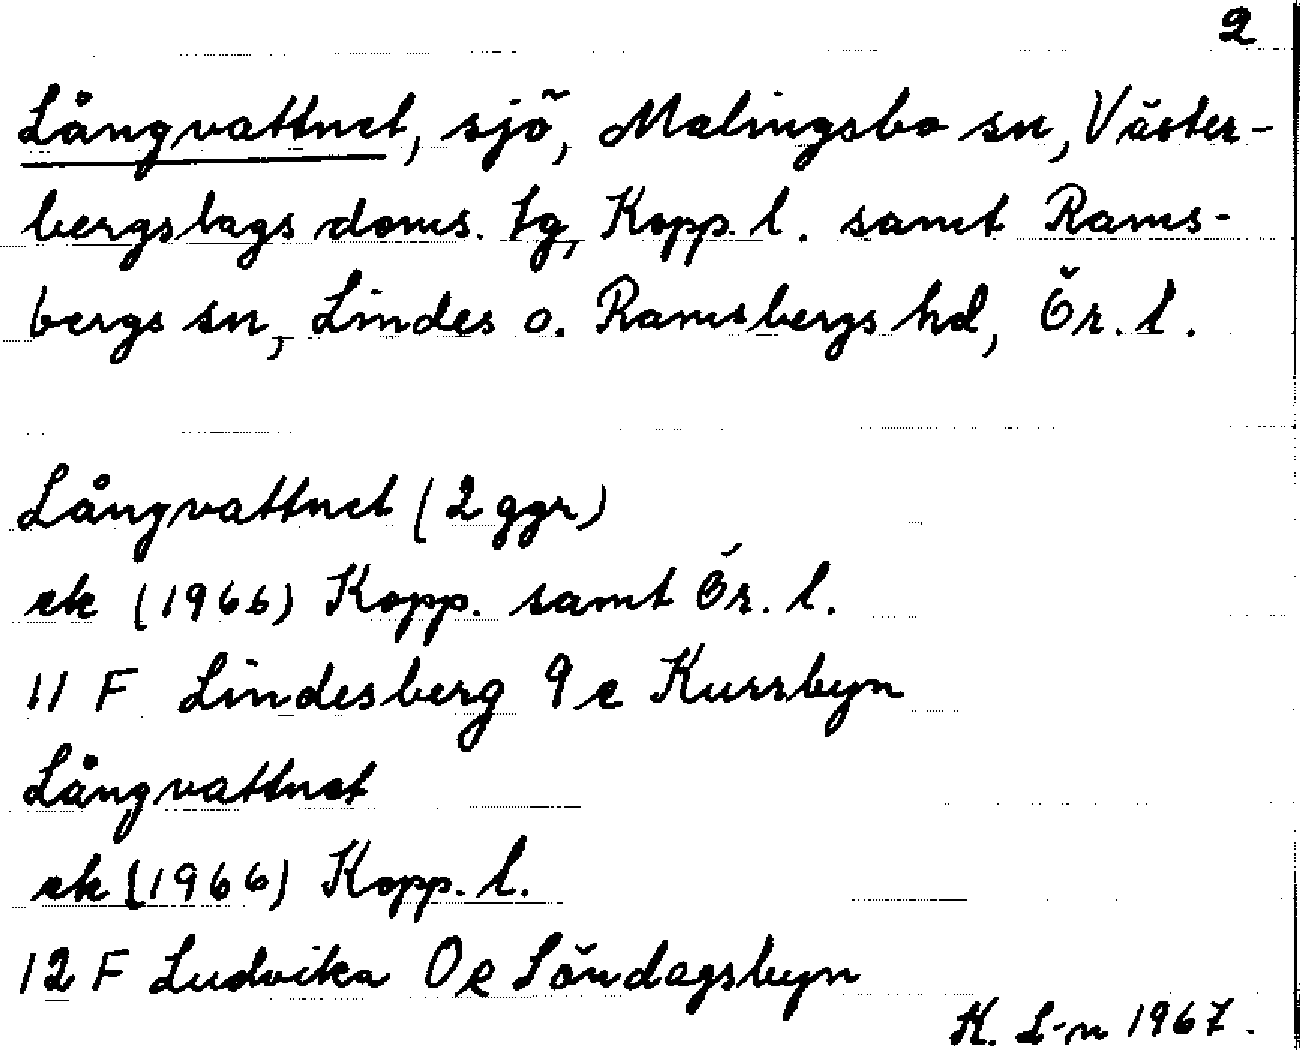 2
Långvattnet, sjö, Malingsbo sn, Väster-
bergslags doms. tg, Kopp. l. samt Rams-
bergs sn, Lindes o. Ramsbergs hd, Ör. l.
Långvattnet (2 ggr)
ek (1966) Kopp. samt Ör. l.
11 F Lindesberg 9 e Kursbyn
Långvattnet
ek (1966) Kopp. l.
12 F Ludvika 0 e Söndagsbyn
K. L-n 1967.